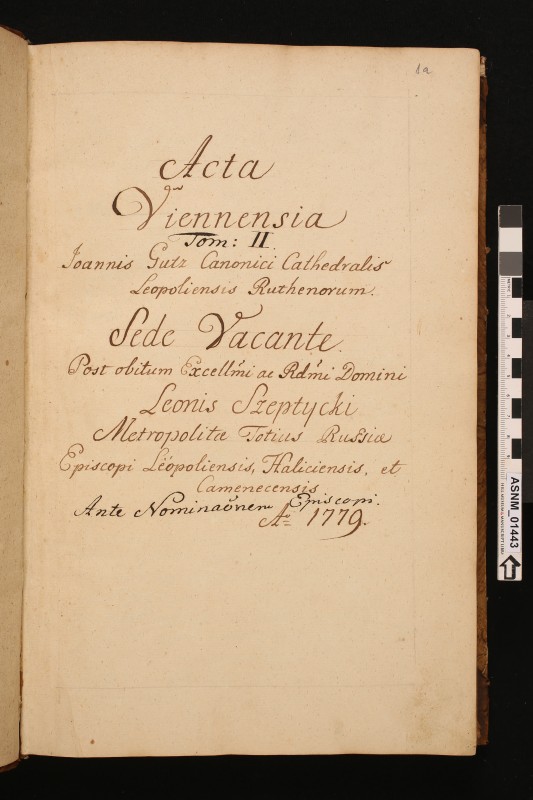 1a
Acta
Viennensia
Tom: II.
Ioannis Gutz Canonici Cathedralis
Leopoliensis Ruthenorum.
Sede Vacante.
Post obitum Excellm̃i ac Rdm̃i Domini
Leonis Szeptycki
Metropolitæ Totius Russiæ
Episcopi Leopoliensis, Haliciensis, et
Camenecensis
Ante Nominaõnem Episcopi.
Aõ 1779.
ASNM_01443